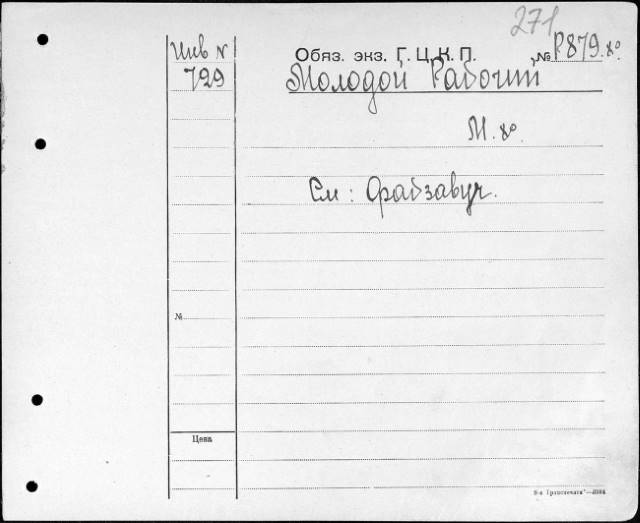 271
Инв N
729
Обяз. экз. Г. Ц. К. П. № Р879.8°
Молодой Рабочий
М. 8°.
См: Фабзавуч.
№
Цена